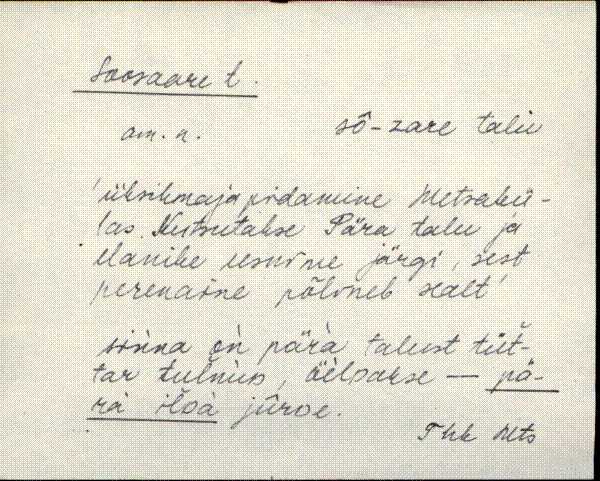 Soosaare t.
am. n.
sô-zare talu
'üksikmajapidamine Metsakü-
las. Kutsutakse Pära talu ja
elanike esnime järgi, sest
perenaine põlvneb sealt'
sìnna òǹ pärà talust tüt-
tar tulnuD, öèlDakse — pä-
rà ilDà jûroe.
Thk Mts